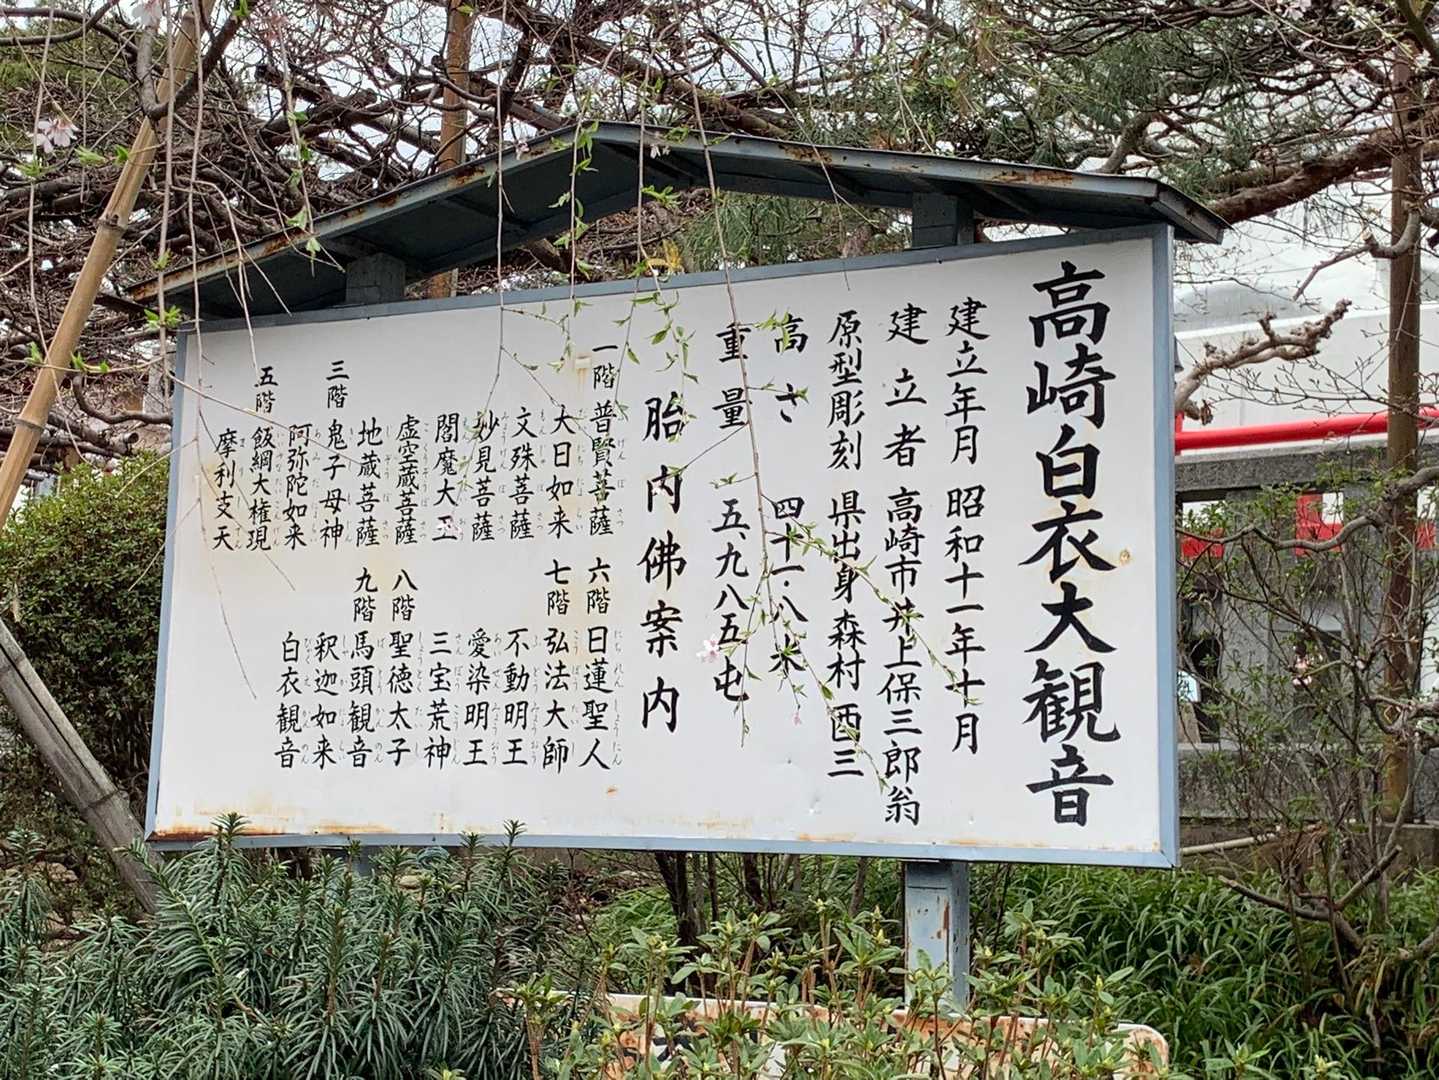 高崎白衣大観音
建立年月 昭和十一年十月
建立者 高崎市井上保三郎翁
原型彫刻 県出身森村酉三
高さ 四十一・八米
重量 五、九八五屯
胎内佛案内
一階 普賢菩薩
大日如来
文殊菩薩
妙見菩薩
閻魔大王
虚空蔵菩薩
地蔵菩薩
三階 鬼子母神
阿弥陀如来
五階 飯綱大権現
摩利支天
六階 日蓮聖人
七階 弘法大師
不動明王
愛染明王
三宝荒神
八階 聖徳太子
九階 馬頭観音
釈迦如来
白衣観音